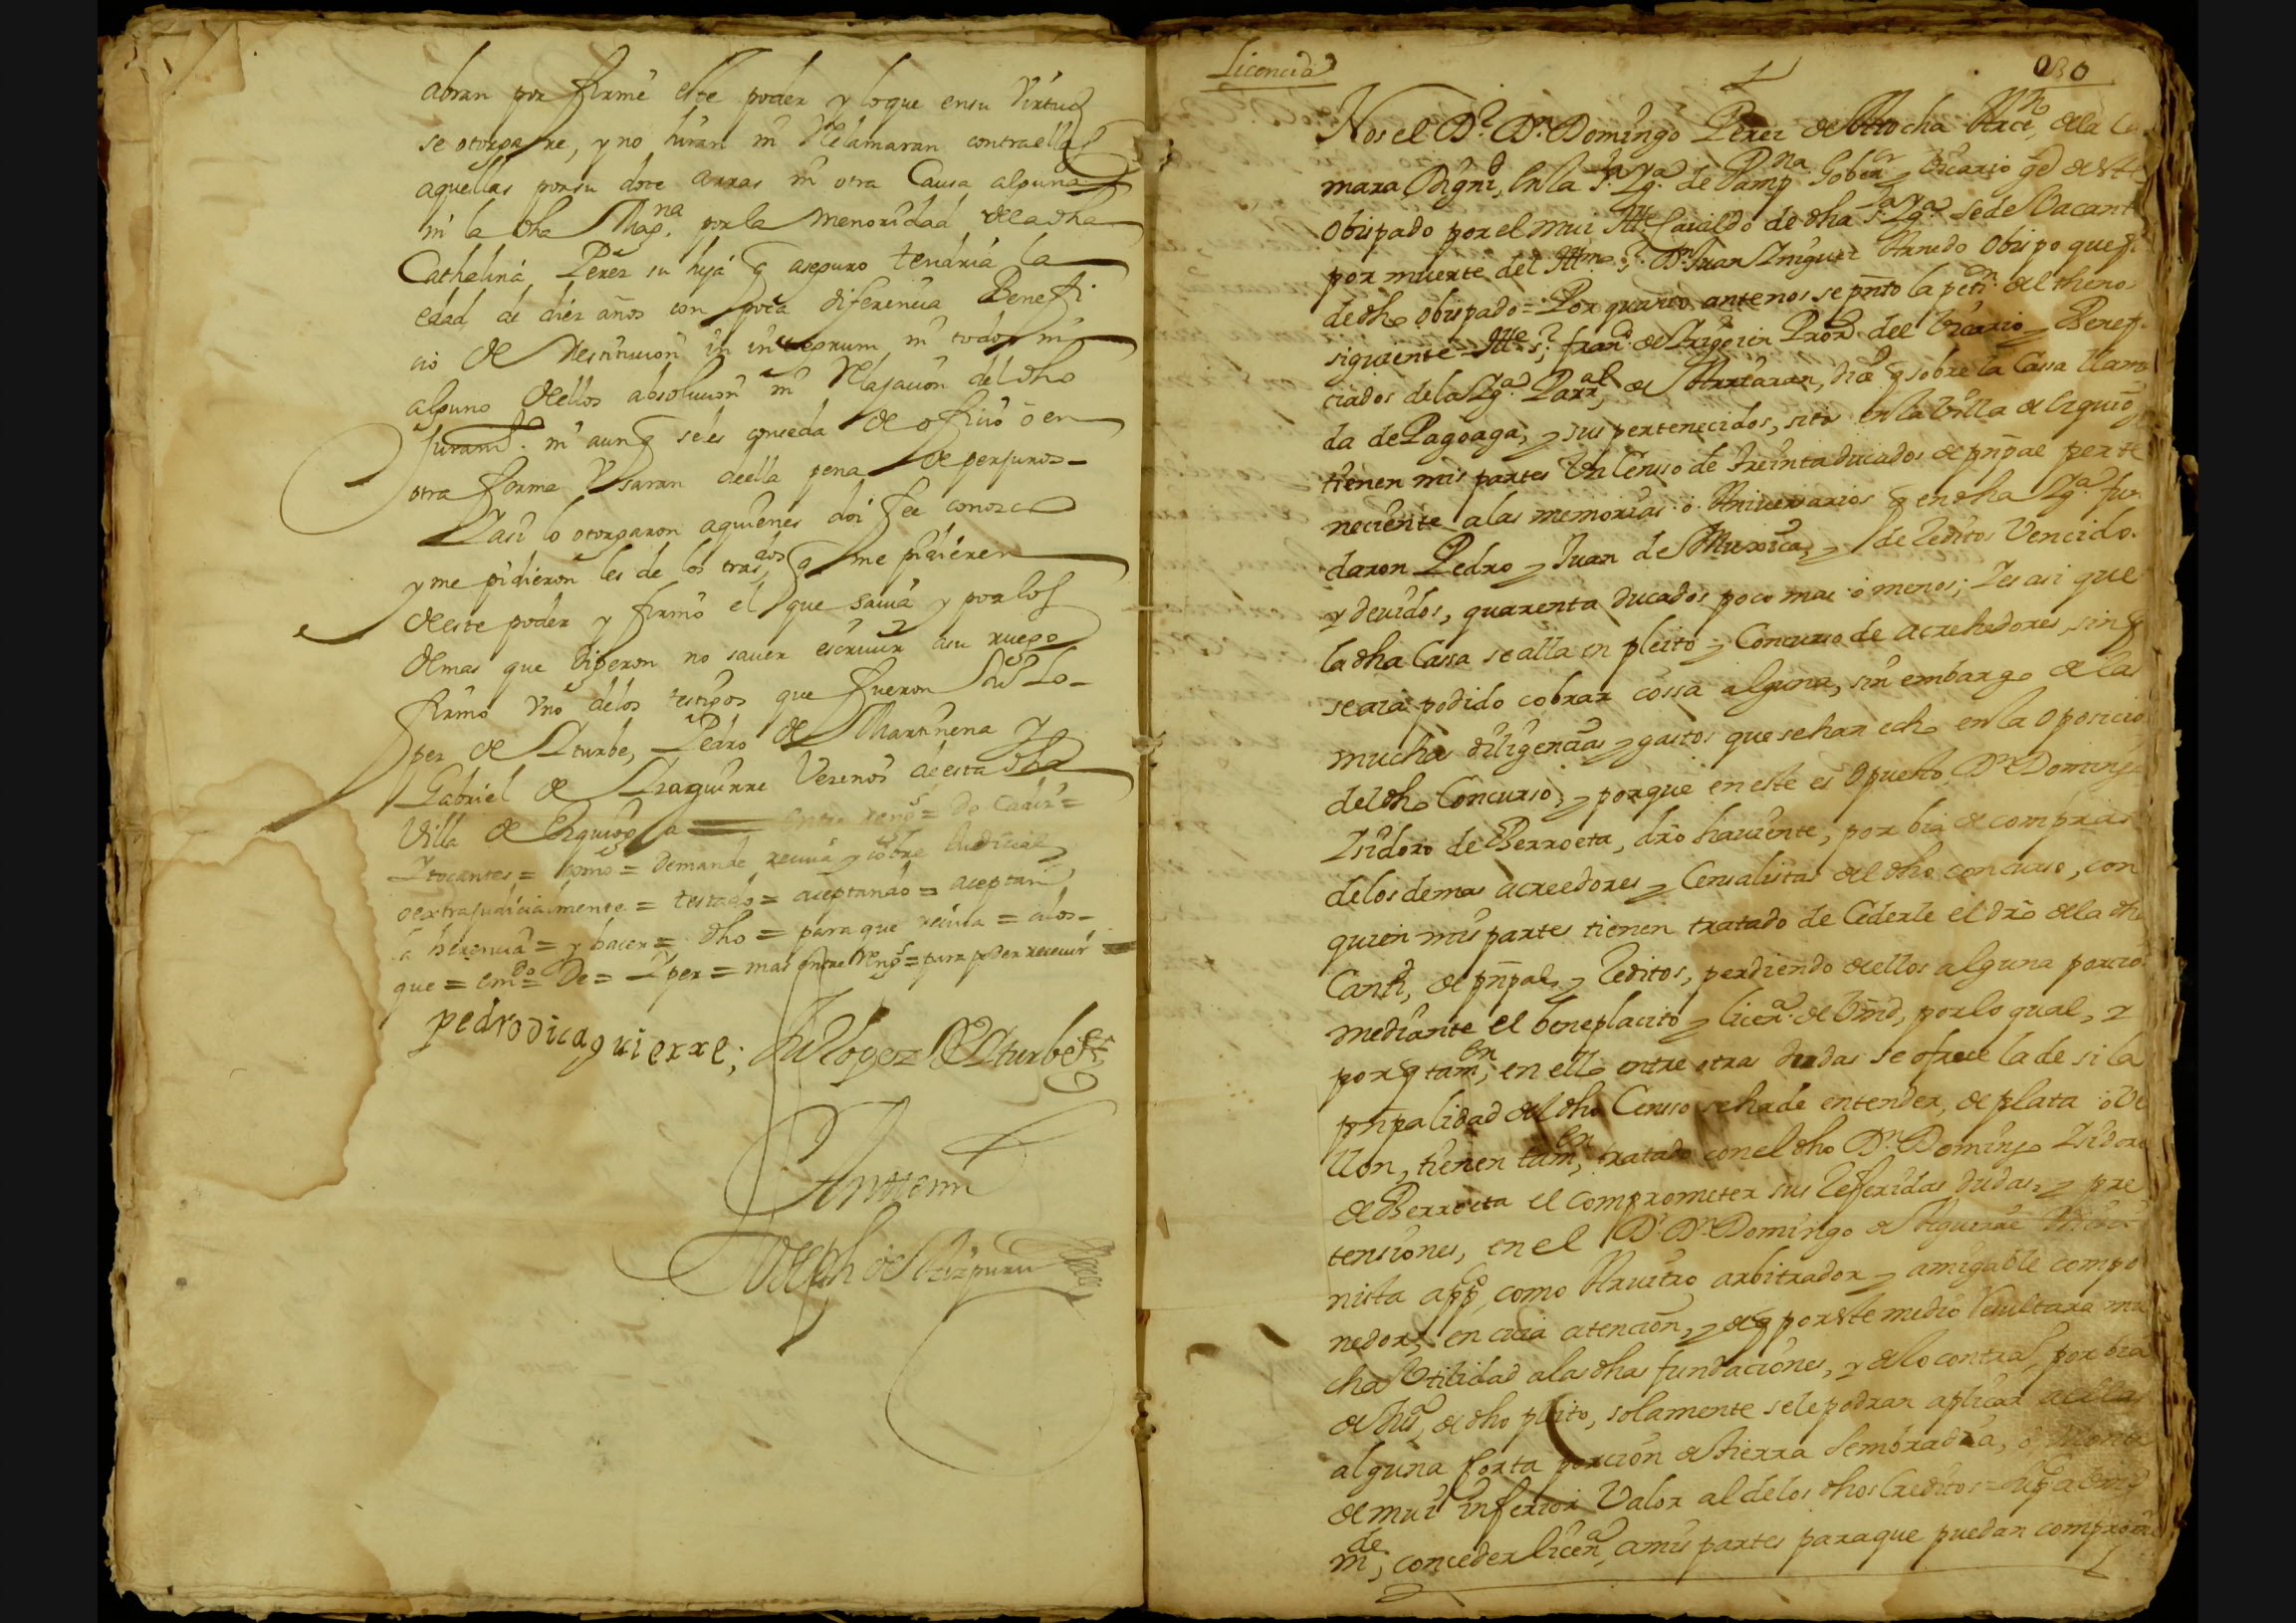 abran por firme este poder y loque ensu Virtud
se otorgare, y no hiran ni Reclamaran contraella
aquellas porsu dote arras ni otra Causa alguna
ni la dha Mag.na por la menoridad dela dha
Cathelina Perez su hija q aseguro tendria la
edad de diez años con poca diferencia Benefi
cio de Restitucion in integrum ni todos ni
alguno dellos absolucion ni Relajacion del dho
Juram.to ni aunq seles conseda de oficio ò en
otra forma Usaran deella pena de perjuros
Yasi lo otorgaron aquienes doi fee conozco
y me pidieron les de los traslados q me pidieren
deeste poder y firmò el que savia y por los
demas que dijeron no saver escrivir asu ruego
firmo Uno delos testigos que fueron Lo-
pez de Yturbe, Pedro de Martinena y
Gabriel de Lizaguirre Vezinos deesta dha
Villa de Elgueta = Entre reng.s = De Cadiz =
Ytocantes = como = demande reciva y cobre Judicial
oextrajudicialmente = testado = aceptando = acepten
la herencia = y hacer = dho = para que reciva = alos-
que = em.do = De = Yper = mas entre Reng.s = para poder recevir =
pedro dicaguierre; Lopez DeYturbe
Antemi
Joseph de Aizpuru
Licencia
Nos el D.r D.n Domingo Perez de Atocha Arce.no dela Ca
mara Dignd, en la S.ta Yg.a de Pamp.na Gober.or y Vicario gel de este
obispado por el mui Ill.e Cavildo de dha S.ta Yg.a sede Vacante
por muerte del Ill.mo S.r D.n Juan Yñiguez Arnedo obispo quefue
de dho obispado = Por quanto antenos se pnto la petn. del thenor
siguiente = Ill.e S.r fran.co de Yrigoien Pror. del Vicario y Benefi
ciados dela Yg.a Parr.al de Anzaran, dice q sobre la Casa llama
da de Pagoaga, y sus pertenecidos, sita en la Villa de
tienen mis partes Un Censo de treinta ducados de pñpal perte
neciente alas memorias ò Aniversarios q en dha Yg.a fun
daron Pedro y Juan de Muxica, y de Reditos Vencidos
y devidos, quarenta ducados poco mas ò menos; Yes asi que
la dha Casa se alla en pleito y Concurso de acrehedores, sinq
se aia podido cobrar cossa alguna, sin embargo de las
muchas diligencias y gastos que se han echo en la oposicion
del dho Concurso, y porque en este es Opuesto D.n Domingo
Isidoro de Berroeta, drõ haviente, por bia de compras
delos demas acreedores y Censalistas del dho concurso, con
quien mis partes tienen tratado de Cederle el drõ dela dha
Cantd, de pñpal, y Reditos, perdiendo deellos alguna porcion
mediante el beneplacito y licen.a de Vmd, por lo qual, y
por q tam.en en ello entre otras dudas se ofrece la de si la
pñpalidad del dho Censo se ha de entender, de plata ò Ve
llon, tienen tam.en tratado con el dho D.n Domingo Isidoro
de Berroeta el comprometer sus Referidas dudas, y pre
tensiones, en el D.r D.n Domingo de Aguirre
nista app.co, como Arvitro arbitrador y amigable compo
nedor, en cuia atencion, y deq por este medio Resultara mu
cha Utilidad alas dhas fundaciones, y delo contrario, por bia
de dho pleito, solamente sele podran aplicar aellas
alguna corta porcion de tierra sembradia, ò Monte
de mui inferior Valor al delos dhos Creditos =
m.de, conceder licen.a amis partes paraque puedan comprome